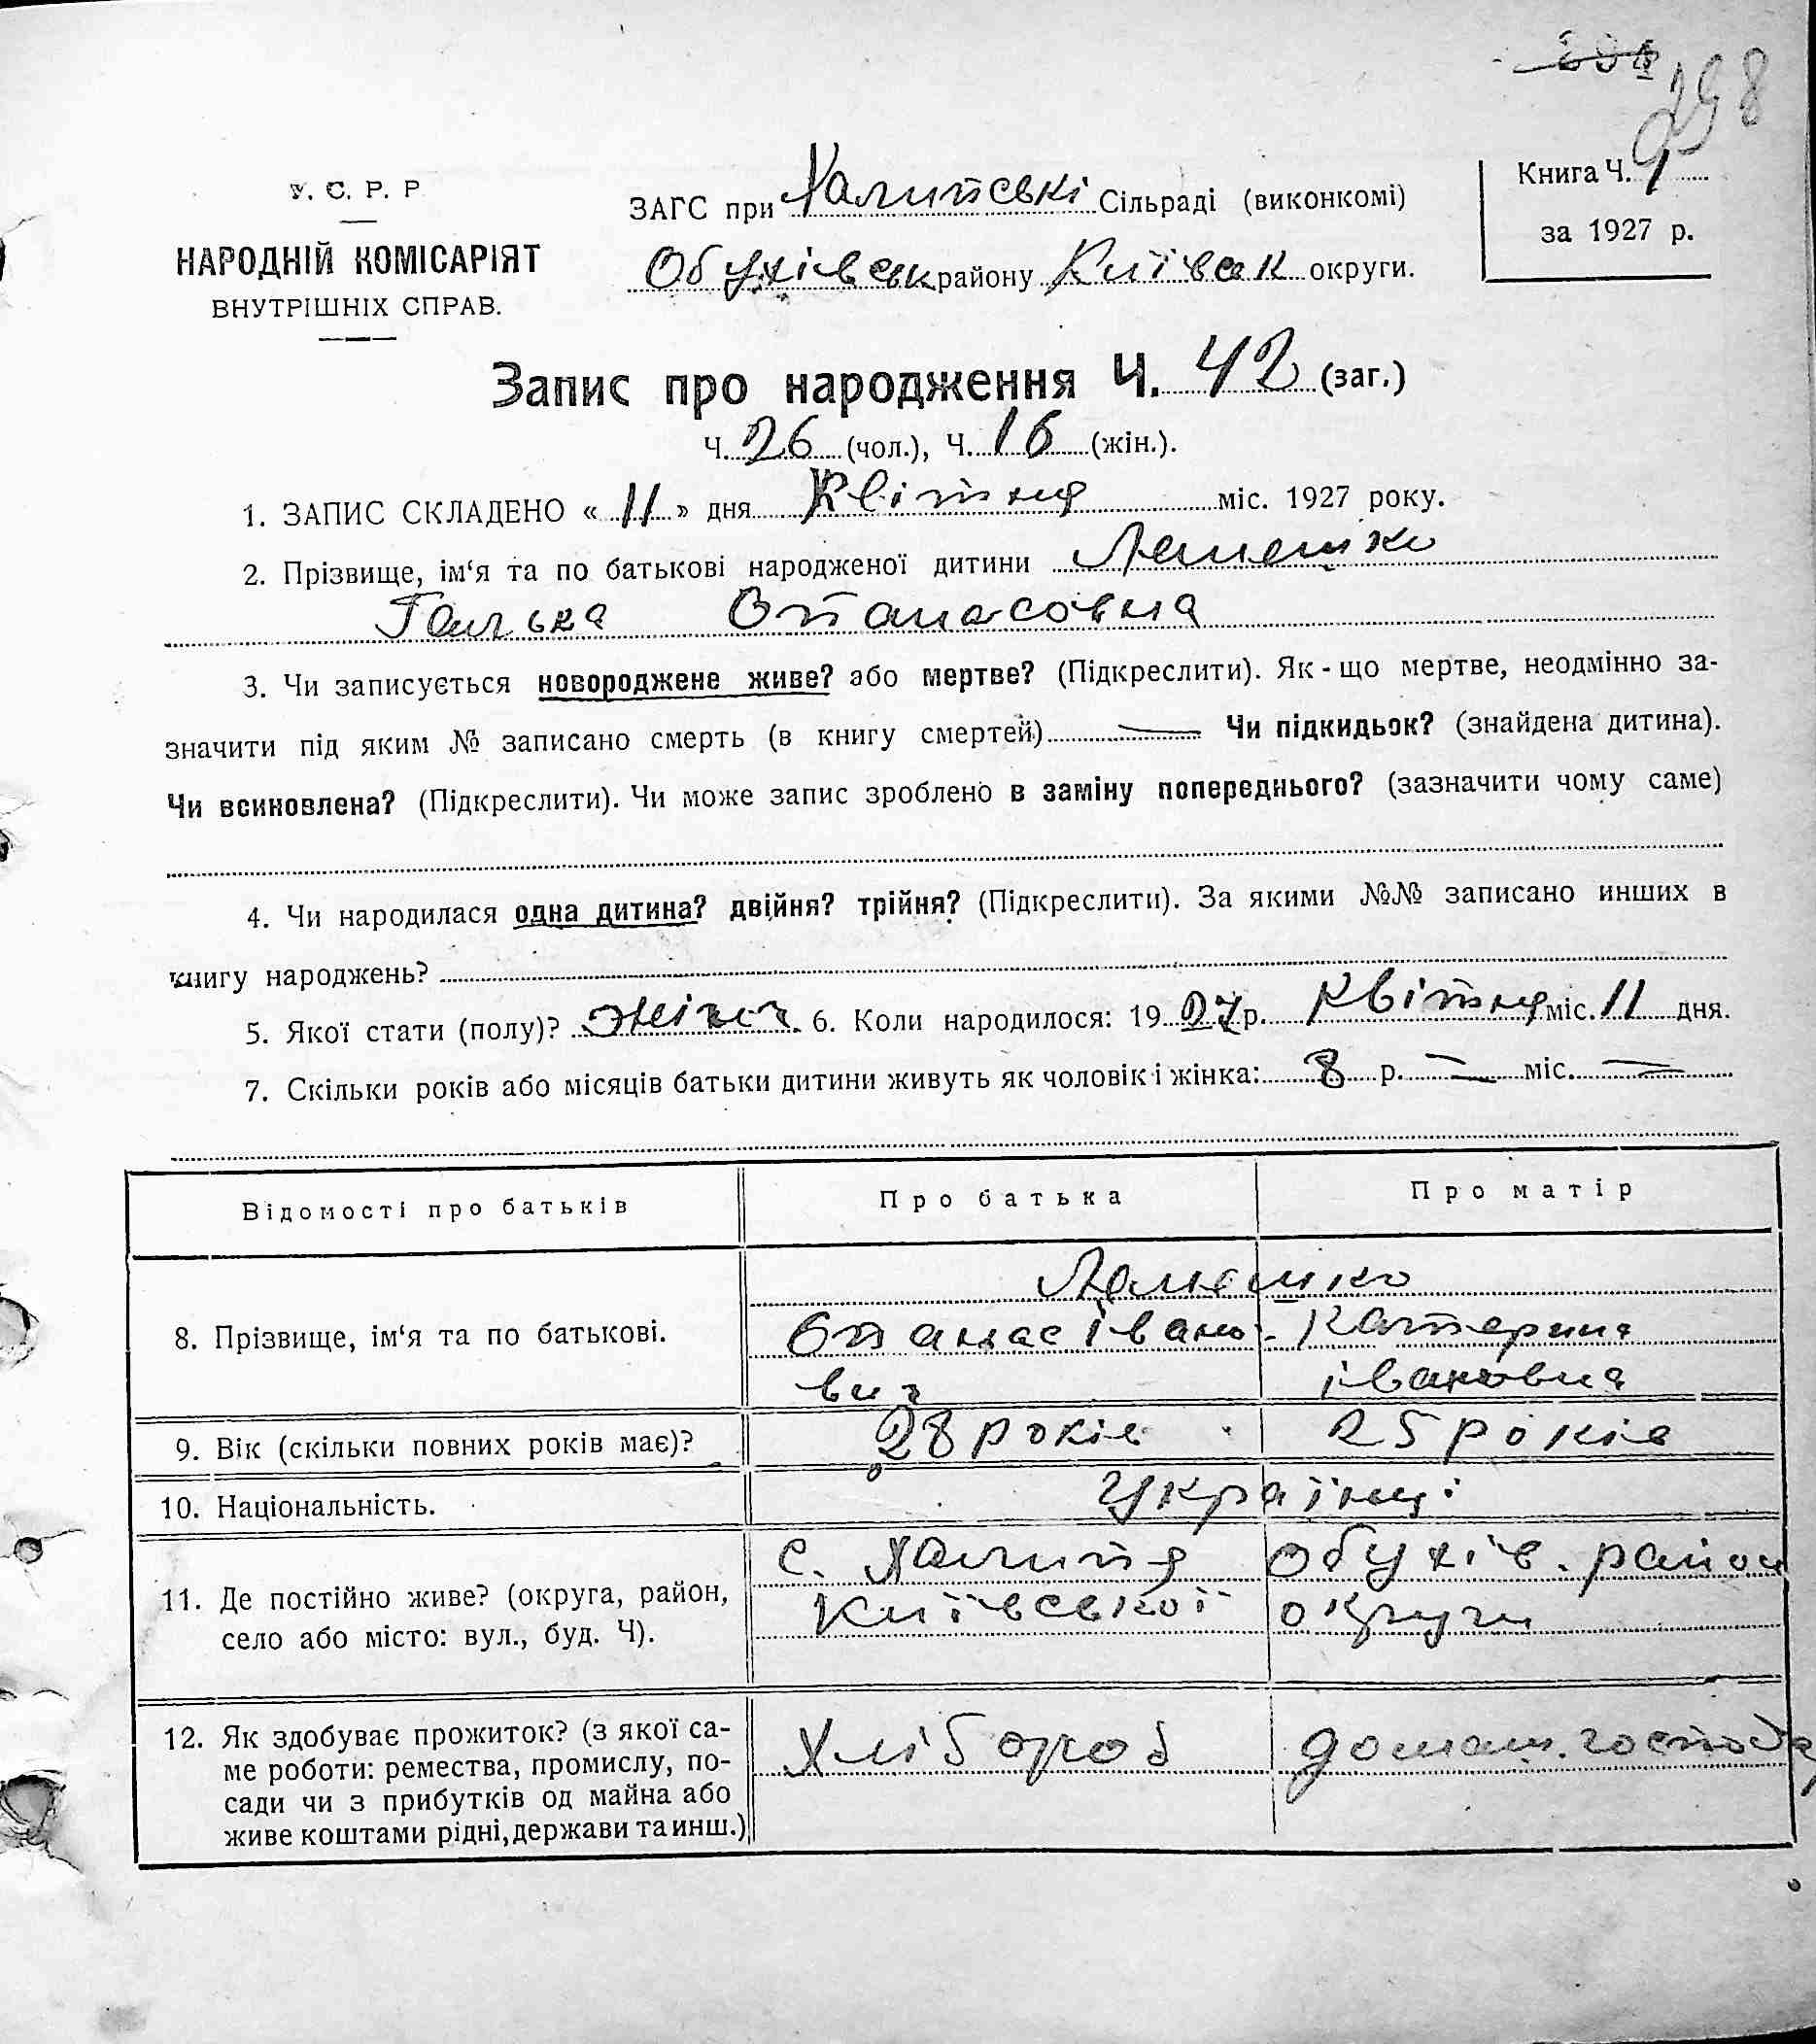 298
У. С. Р. Р
НАРОДНІЙ КОМІСАРІЯТ
ВНУТРІШНІХ СПРАВ.
ЗАГС при Халипські Сільраді (виконкомі)
Обухівськ району Київськ округи.
Книга Ч. 1
за 1927 р.
Запис про народження Ч. 42 (заг.)
Ч. 26 (чол.), Ч. 16 (жін.).
1. ЗАПИС СКЛАДЕНО « 11 » дня Квітня міс. 1927 року.
2. Прізвище, ім‘я та по батькові народженої дитини
Галька Опанасовна
3. Чи записується новороджене живе? або мертве? (Підкреслити). Як - що мертве, неодмінно за-
значити під яким № записано смерть (в книгу смертей) — Чи підкидьок? (знайдена дитина).
Чи всиновлена? (Підкреслити). Чи може запис зроблено в заміну попереднього? (зазначити чому саме)
4. Чи народилася одна дитина? двійня? трійня? (Підкреслити). За якими №№ записано инших в
книгу народжень?
5. Якої стати (полу)? 6. Коли народилося: 19 27 р. Квітня міс. 11 дня.
7. Скільки років або місяців батьки дитини живуть як чоловік і жінка: 8 р. — міс. —
Відомості про батьків Про батька Про матір
8. Прізвище, ім‘я та по батькові.
Опанас Івано- Катерина
вич івановна
9. Вік (скільки повних років має)? 28 років 25 років
10. Національність. Українці
11. Де постійно живе? (округа, район,
село або місто: вул., буд. Ч).
с. Халипя Обухів. район
Київської округи
12. Як здобуває прожиток? (з якої са-
ме роботи: ремества, промислу, по-
сади чи з прибутків од майна або
живе коштами рідні, держави та инш.)
Хлібороб домаш. господар